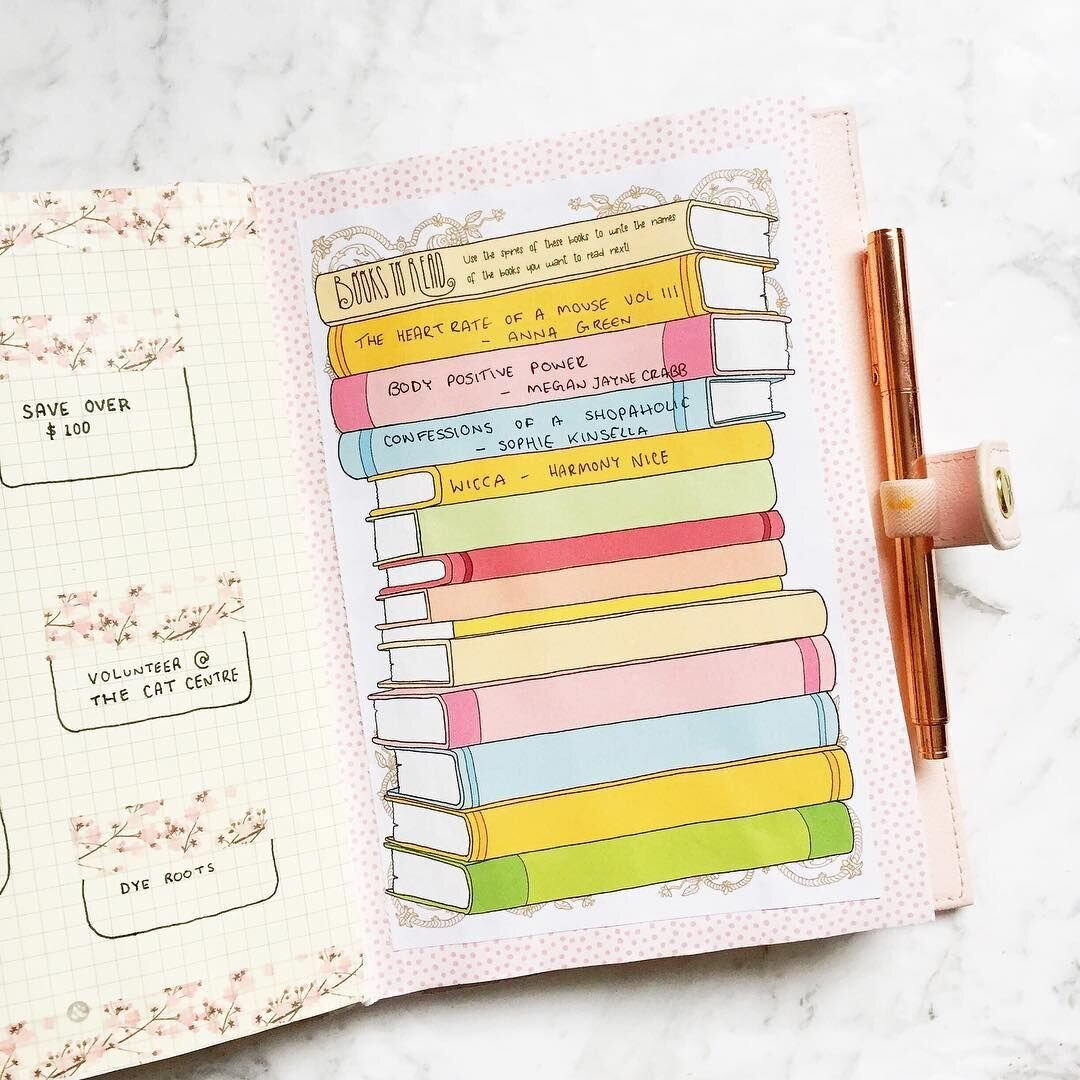 SAVE OVER
$100
VOLUNTEER @
THE CAT CENTRE
DYE ROOTS
BOOKS TO READ
Use the spines of these books to write the names
of the books you want to read next!
THE HEART RATE OF A MOUSE VOL III
- ANNA GREEN
BODY POSITIVE POWER
- MEGAN JAYNE CRABB
CONFESSIONS OF A SHOPAHOLIC
- SOPHIE KINSELLA
WICCA - HARMONY NICE